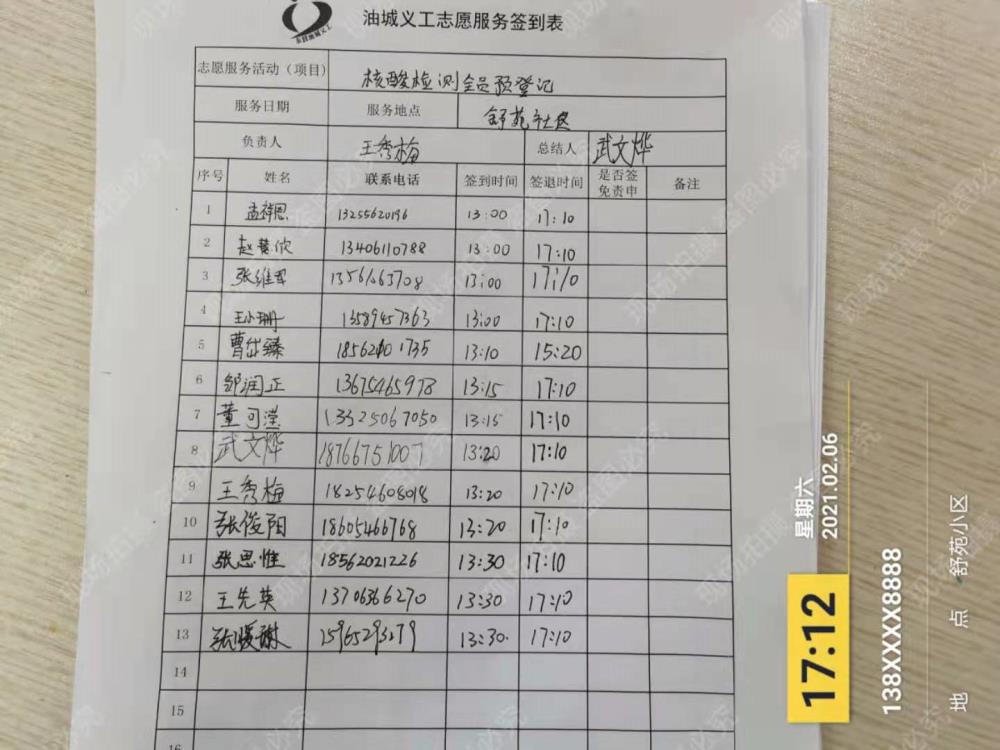 东营油城义工
油城义工志愿服务签到表
志愿服务活动（项目） 核酸检测全员预登记
服务日期 服务地点 舒苑社区
负责人 王秀梅 总结人 武文烨
序号 姓名 联系电话 签到时间 签退时间 是否签免责申 备注
1 孟祥恩 13255620196 13:00 17:10
2 赵慧欣 13406110788 13:00 17:10
3 张维军 13561663708 13:00 17:10
4 王小珊 13589457363 13:00 17:10
5 曹岱臻 18562101735 13:10 15:20
6 邹润正 13675465978 13:15 17:10
7 董可滢 13325067050 13:15 17:10
8 武文烨 18766751007 13:20 17:10
9 王秀梅 18254608018 13:20 17:10
10 张俊阳 18605466768 13:20 17:10
11 张思惟 18562021226 13:30 17:10
12 王先英 13706366270 13:30 17:10
13 15965293279 13:30 17:10
14
15
16
17:12
星期六
2021.02.06
138XXXX8888
地 点 舒苑小区